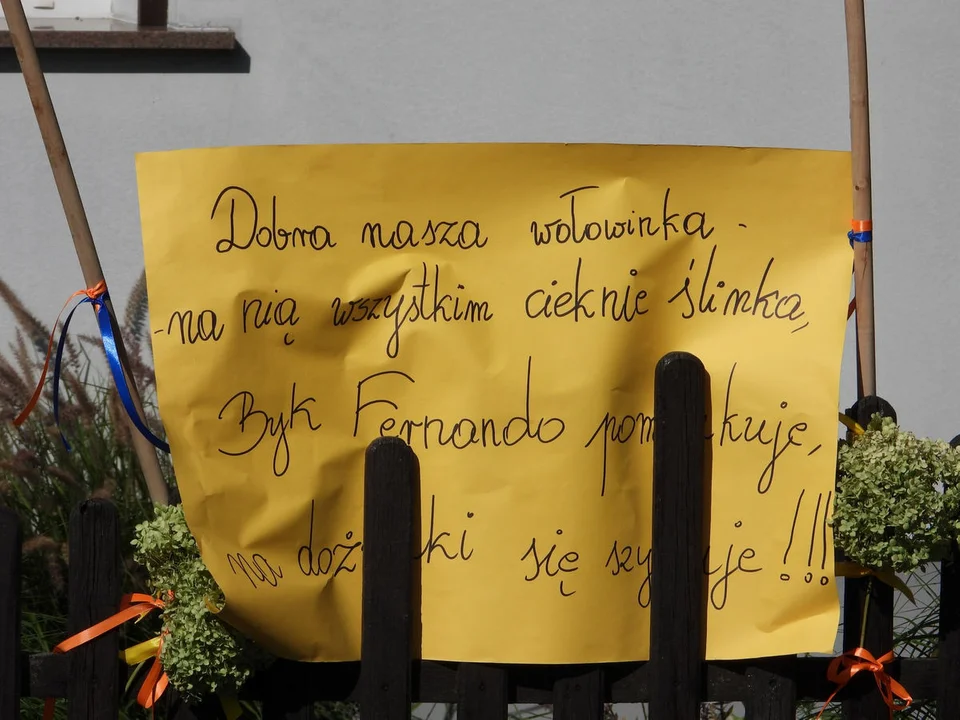 Dobra nasza wołowinka -
-na nią wszystkim cieknie ślinka,
Byk Fernando kuje,
na się !!!